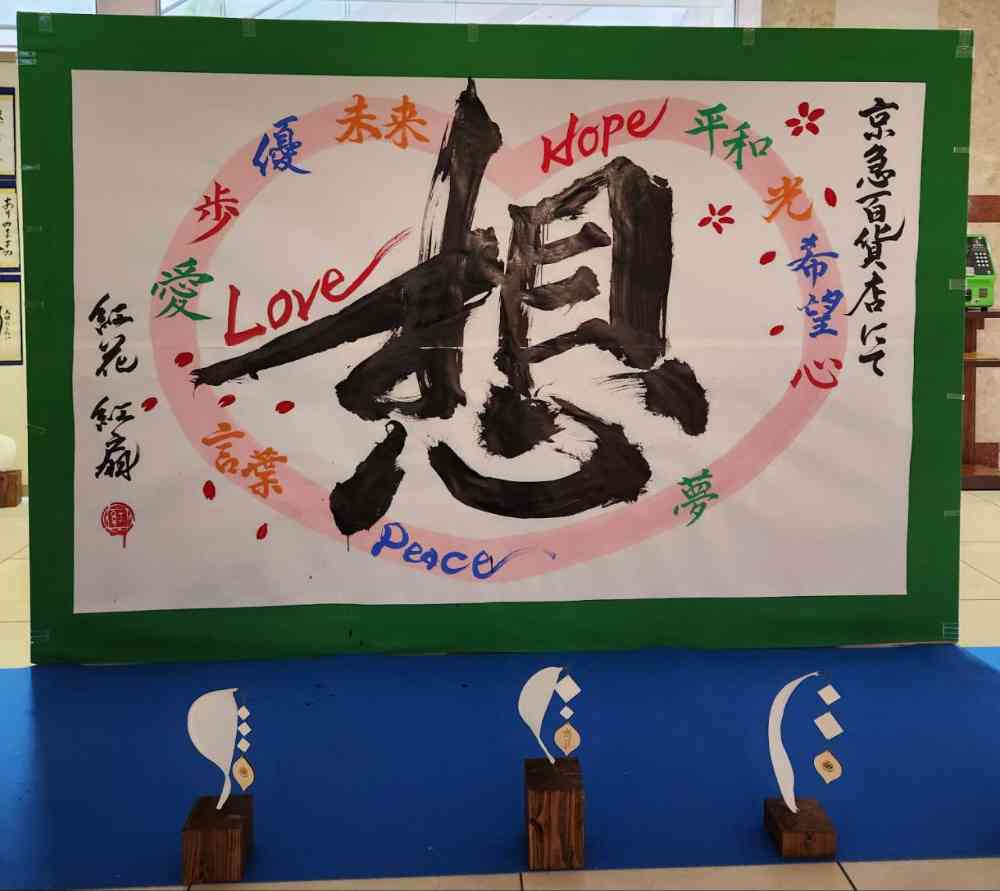 京急百貨店にて
想
未来
優
歩
愛
Love
言葉
Peace
Hope
平和
光
希望
心
夢
紅花 紅扇
ありのままの